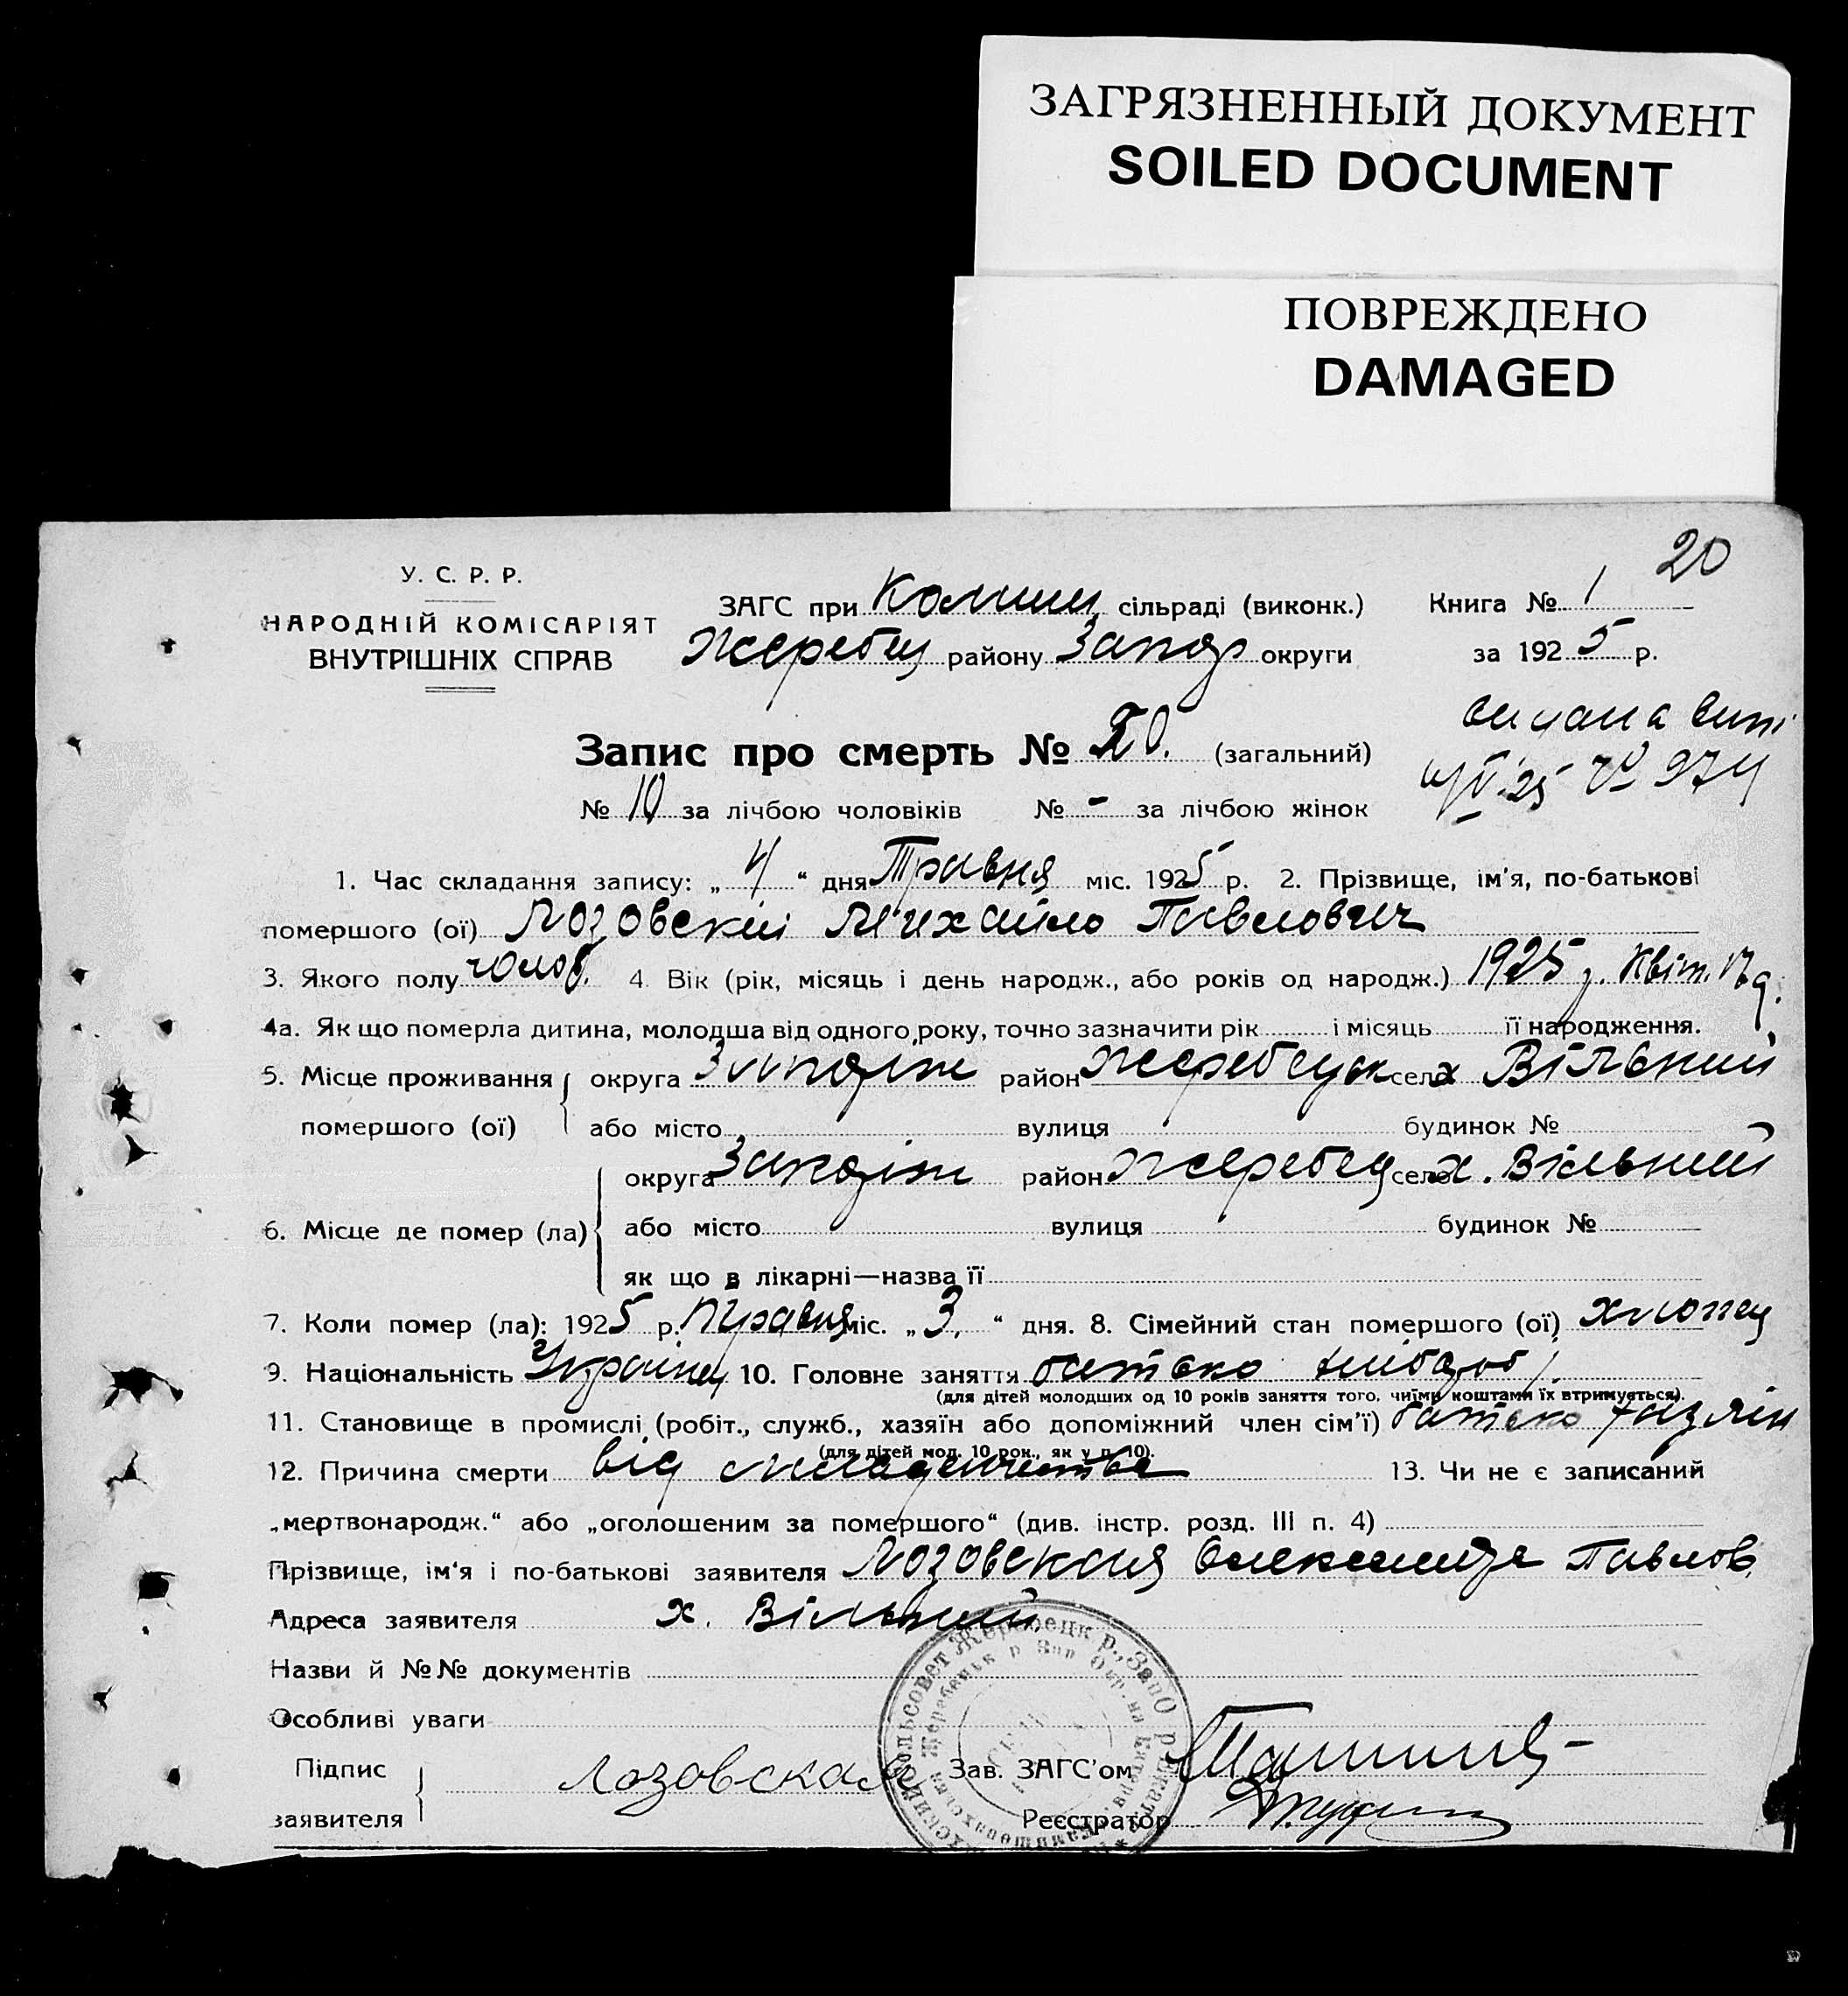 ЗАГРЯЗНЕННЫЙ ДОКУМЕНТ
SOILED DOCUMENT
ПОВРЕЖДЕНО
DAMAGED
20
У. С. Р. Р.
НАРОДНІЙ КОМІСАРІЯТ
ВНУТРІШНІХ СПРАВ
ЗАГС при Комиш сільраді (виконк.) Книга № 1
Жеребец району Запор округи за 1925 р.
Запис про смерть № 20. (загальний)
видана вип.
4/V.25 № 974
№ 10 за лічбою чоловіків № - за лічбою жінок
1. Час складання запису: „ 4 “ дня Травня міс. 1925 р. 2. Прізвище, ім'я, по-батькові
помершого (ої) Лозовскій Михайло Павлович
3. Якого полу чолов. 4. Вік (рік, місяць і день народж., або років од народж.) 1925 р. Квіт. 17 д.
4а. Як що померла дитина, молодша від одного року, точно зазначити рік і місяць її народження.
5. Місце проживання округа Запоріж район Жеребецьк село х Вільний
помершого (ої) або місто вулиця будинок №
округа Запоріж район Жеребец село х. Вільний
6. Місце де помер (ла) або місто вулиця будинок №
як що в лікарні—назва її
7. Коли помер (ла): 1925 р. Травня міс. „ 3. “ дня. 8. Сімейний стан помершого (ої) хлопец
9. Національність Українец 10. Головне заняття батько хлібороб
(для дітей молодших од 10 років заняття того, чиїми коштами їх втримується).
11. Становище в промислі (робіт., служб., хазяїн або допоміжний член сім'ї) батько хазяїн
(для дітей мол. 10 рок., як у п. 10).
12. Причина смерти від младенчества 13. Чи не є записаний
„мертвонародж.“ або „оголошеним за помершого“ (див. інстр. розд. III п. 4)
Прізвище, ім'я і по-батькові заявителя Лозовская Олександра Павлов.
Адреса заявителя х. Вільний
Назви й №№ документів
Особливі уваги
Підпис заявителя Лозовская Зав. ЗАГС'ом
Реєстратор